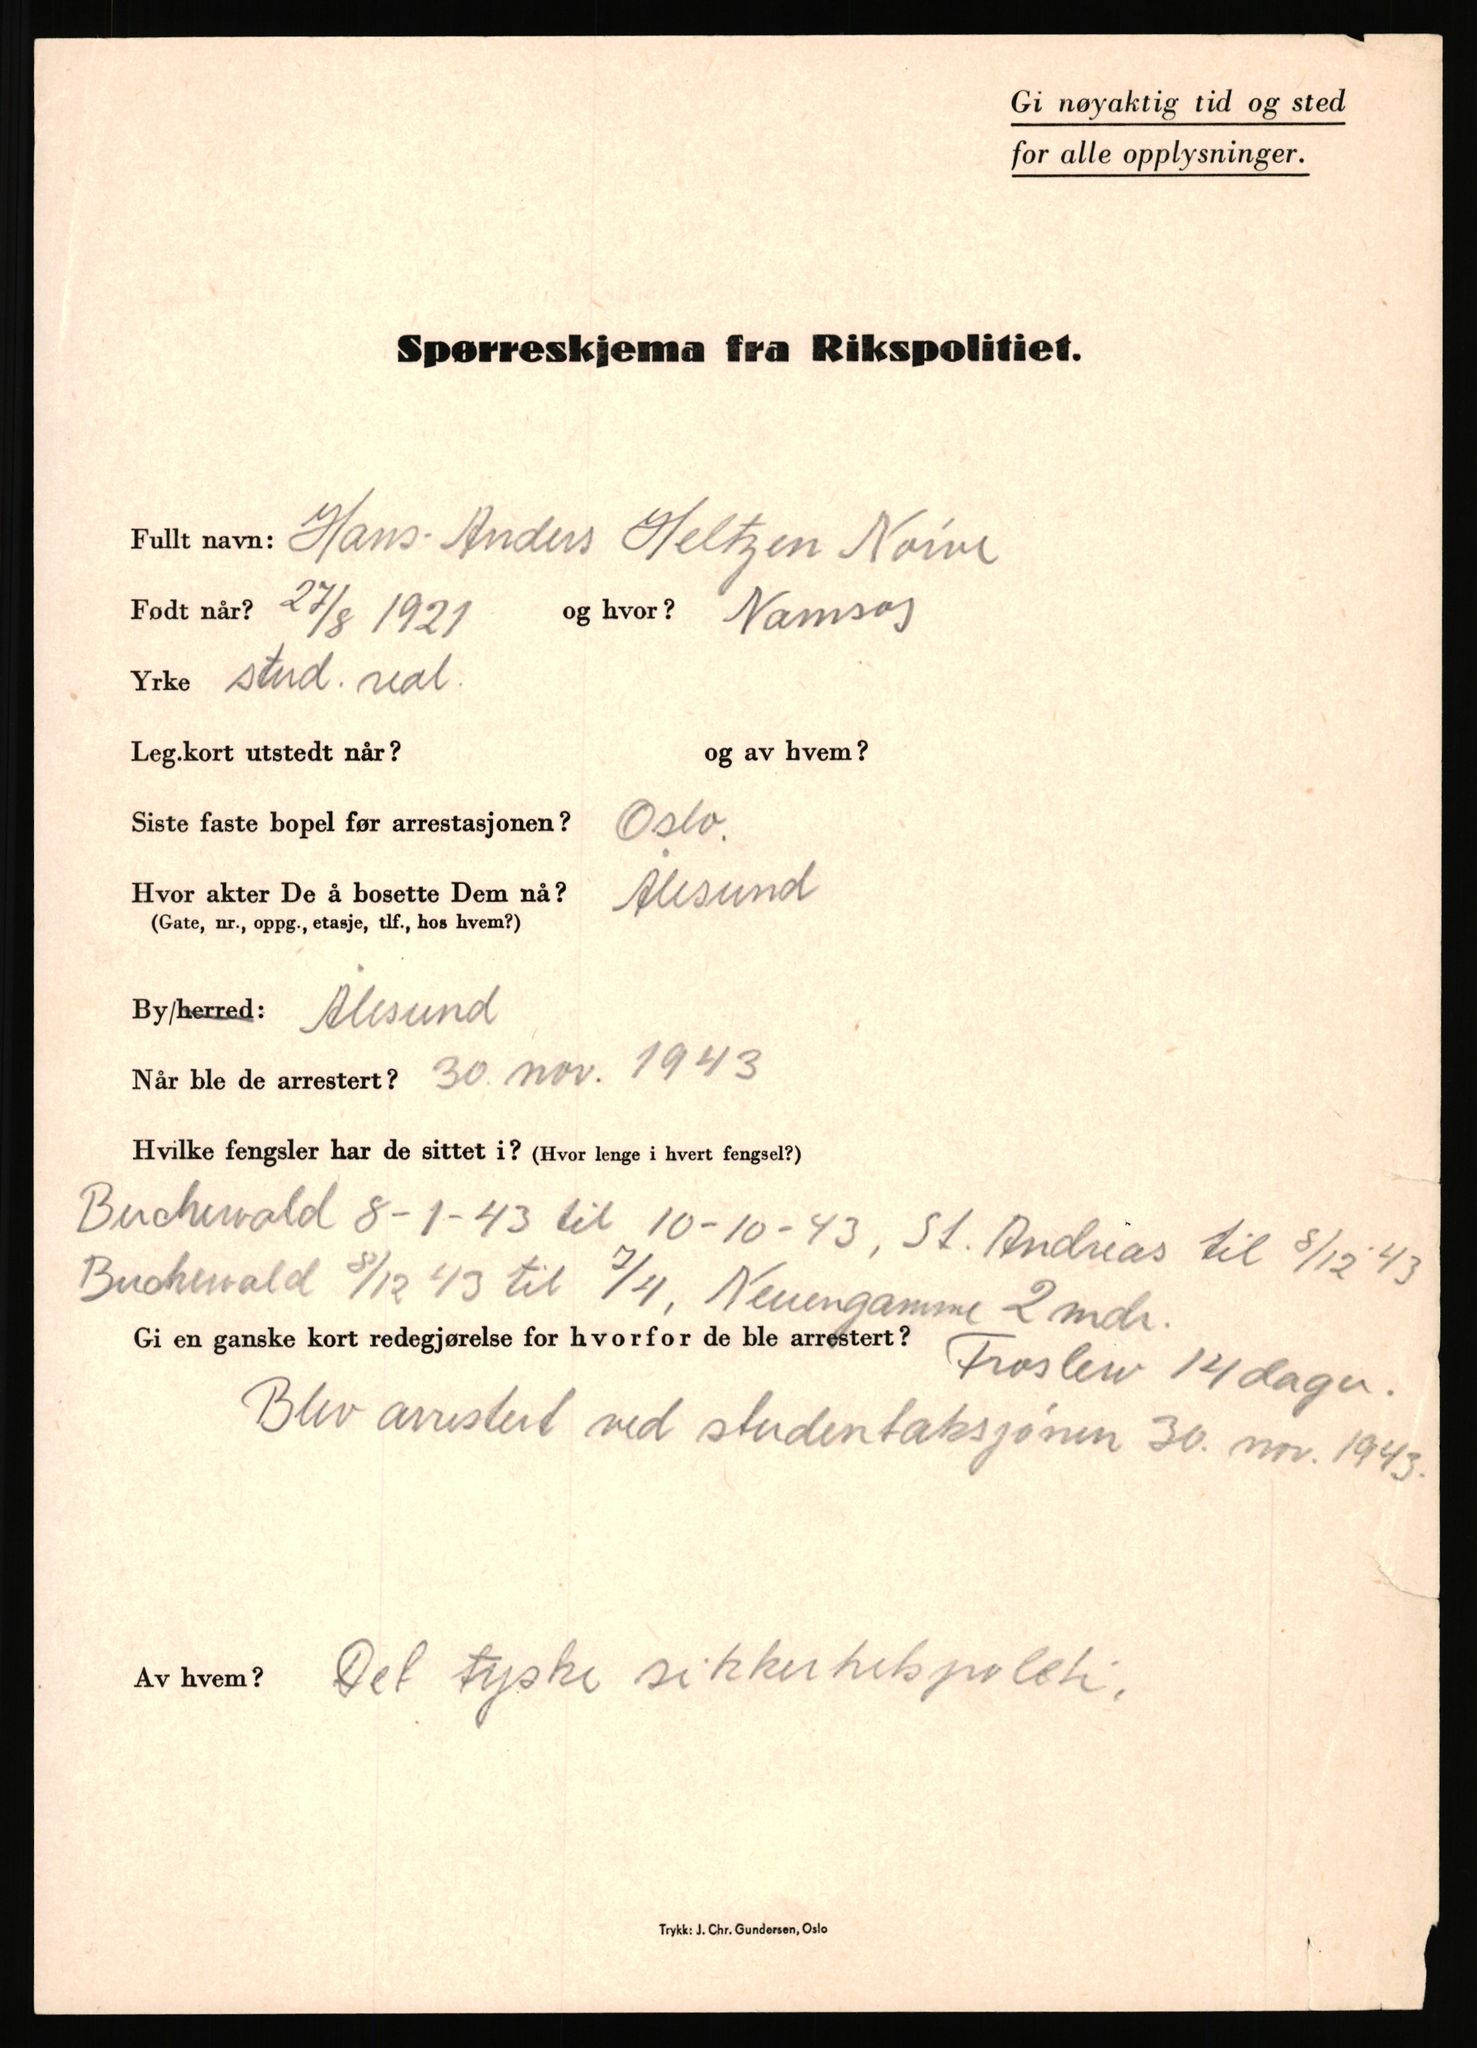 Gi nøyaktig tid og sted
for alle opplysninger.
Spørreskjema fra Rikspolitiet.
Fullt navn: Hans-Anders Heltzen
Født når? 27/8 1921 og hvor? Namsos
Yrke stud. real.
Leg.kort utstedt når? og av hvem?
Siste faste bopel før arrestasjonen? Oslo.
Hvor akter De å bosette Dem nå? Ålesund
(Gate, nr., oppg., etasje, tlf., hos hvem?)
By/herred: Ålesund
Når ble de arrestert? 30. nov. 1943
Hvilke fengsler har de sittet i? (Hvor lenge i hvert fengsel?)
Buchewald 8-1-43 til 10-10-43, St. Andreas til 8/12-43
Buchewald 8/12 43 til 7/4, Neuengamme 2 mdr.
Gi en ganske kort redegjørelse for hvorfor de ble arrestert? Froslew 14 dager.
Blev arrestert ved studentaksjonen 30. nov. 1943.
Av hvem? Det tyske sikkerhetspoleti.
Trykk: J. Chr. Gundersen, Oslo